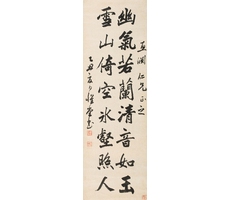 亞瀾仁兄正之
幽氣若蘭清音如玉
雪山倚空冰壑照人
乙丑夏